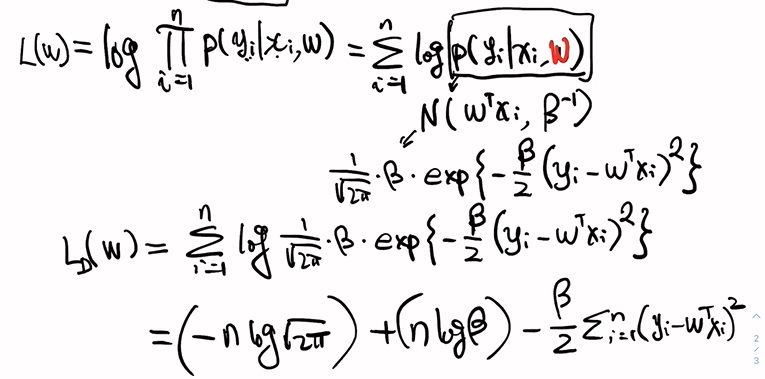 L(w) = log ∏_{i=1}^{n} p(y_i|x_i, w) = Σ_{i=1}^{n} log p(y_i|x_i, w)
N(w^T x_i, β^{-1})
1/√(2π) · β · exp{-β/2 (y_i - w^T x_i)^2}
L_D(w) = Σ_{i=1}^{n} log 1/√(2π) · β · exp{-β/2 (y_i - w^T x_i)^2}
= (-n log √(2π)) + (n log β) - β/2 Σ_{i=1}^{n} (y_i - w^T x_i)^2
2
/
3